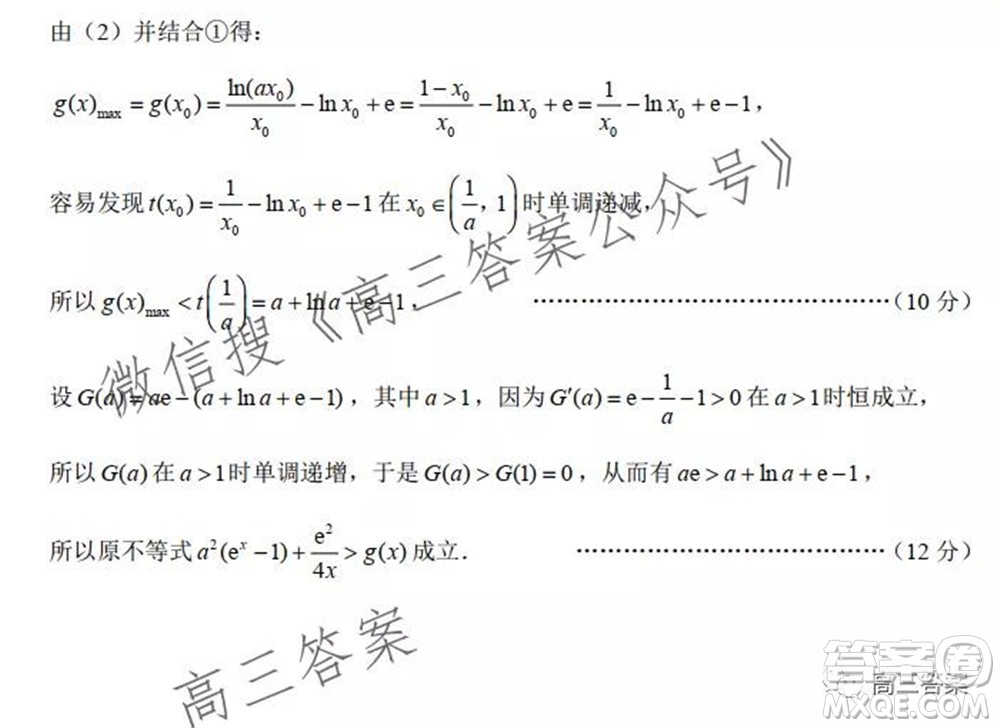 由（2）并结合①得：
g(x)max = g(x₀) = ln(ax₀)/x₀ − ln x₀ + e = (1−x₀)/x₀ − ln x₀ + e = 1/x₀ − ln x₀ + e − 1，
容易发现 t(x₀) = 1/x₀ − ln x₀ + e − 1 在 x₀ ∈ (1/a，1) 时单调递减，
所以 g(x)max < t(1/a) = a + ln a + e − 1， ……………………………………（10 分）
设 G(a) = ae − (a + ln a + e − 1)，其中 a > 1，因为 G′(a) = e − 1/a − 1 > 0 在 a > 1 时恒成立，
所以 G(a) 在 a > 1 时单调递增，于是 G(a) > G(1) = 0，从而有 ae > a + ln a + e − 1，
所以原不等式 a²(eˣ − 1) + e²/4x > g(x) 成立． ………………………………（12 分）
微信搜《高三答案公众号》
高三答案
高三答案
答案圈
MXQE.COM